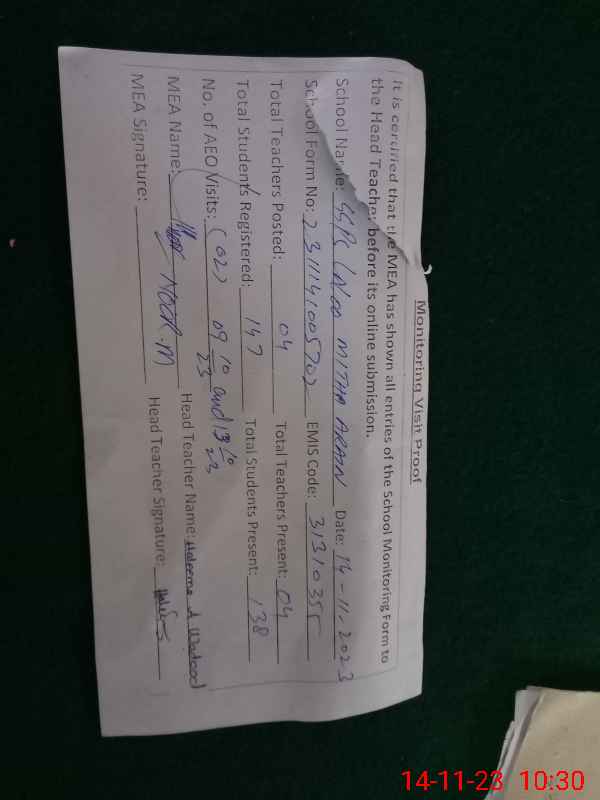 Monitoring Visit Proof
It is certified that the MEA has shown all entries of the School Monitoring Form to
the Head Teacher before its online submission.
School Name: MITHA ARAIN Date: 14-11-2023
School Form No: 2311141005702 EMIS Code: 3131035
Total Teachers Posted: 04 Total Teachers Present: 04
Total Students Registered: 147 Total Students Present: 138
No. of AEO Visits: (02) 09 10 23 and 13 10 23
MEA Name: NOOR.M Head Teacher Name: Haleema
MEA Signature: Head Teacher Signature:
14-11-23 10:30